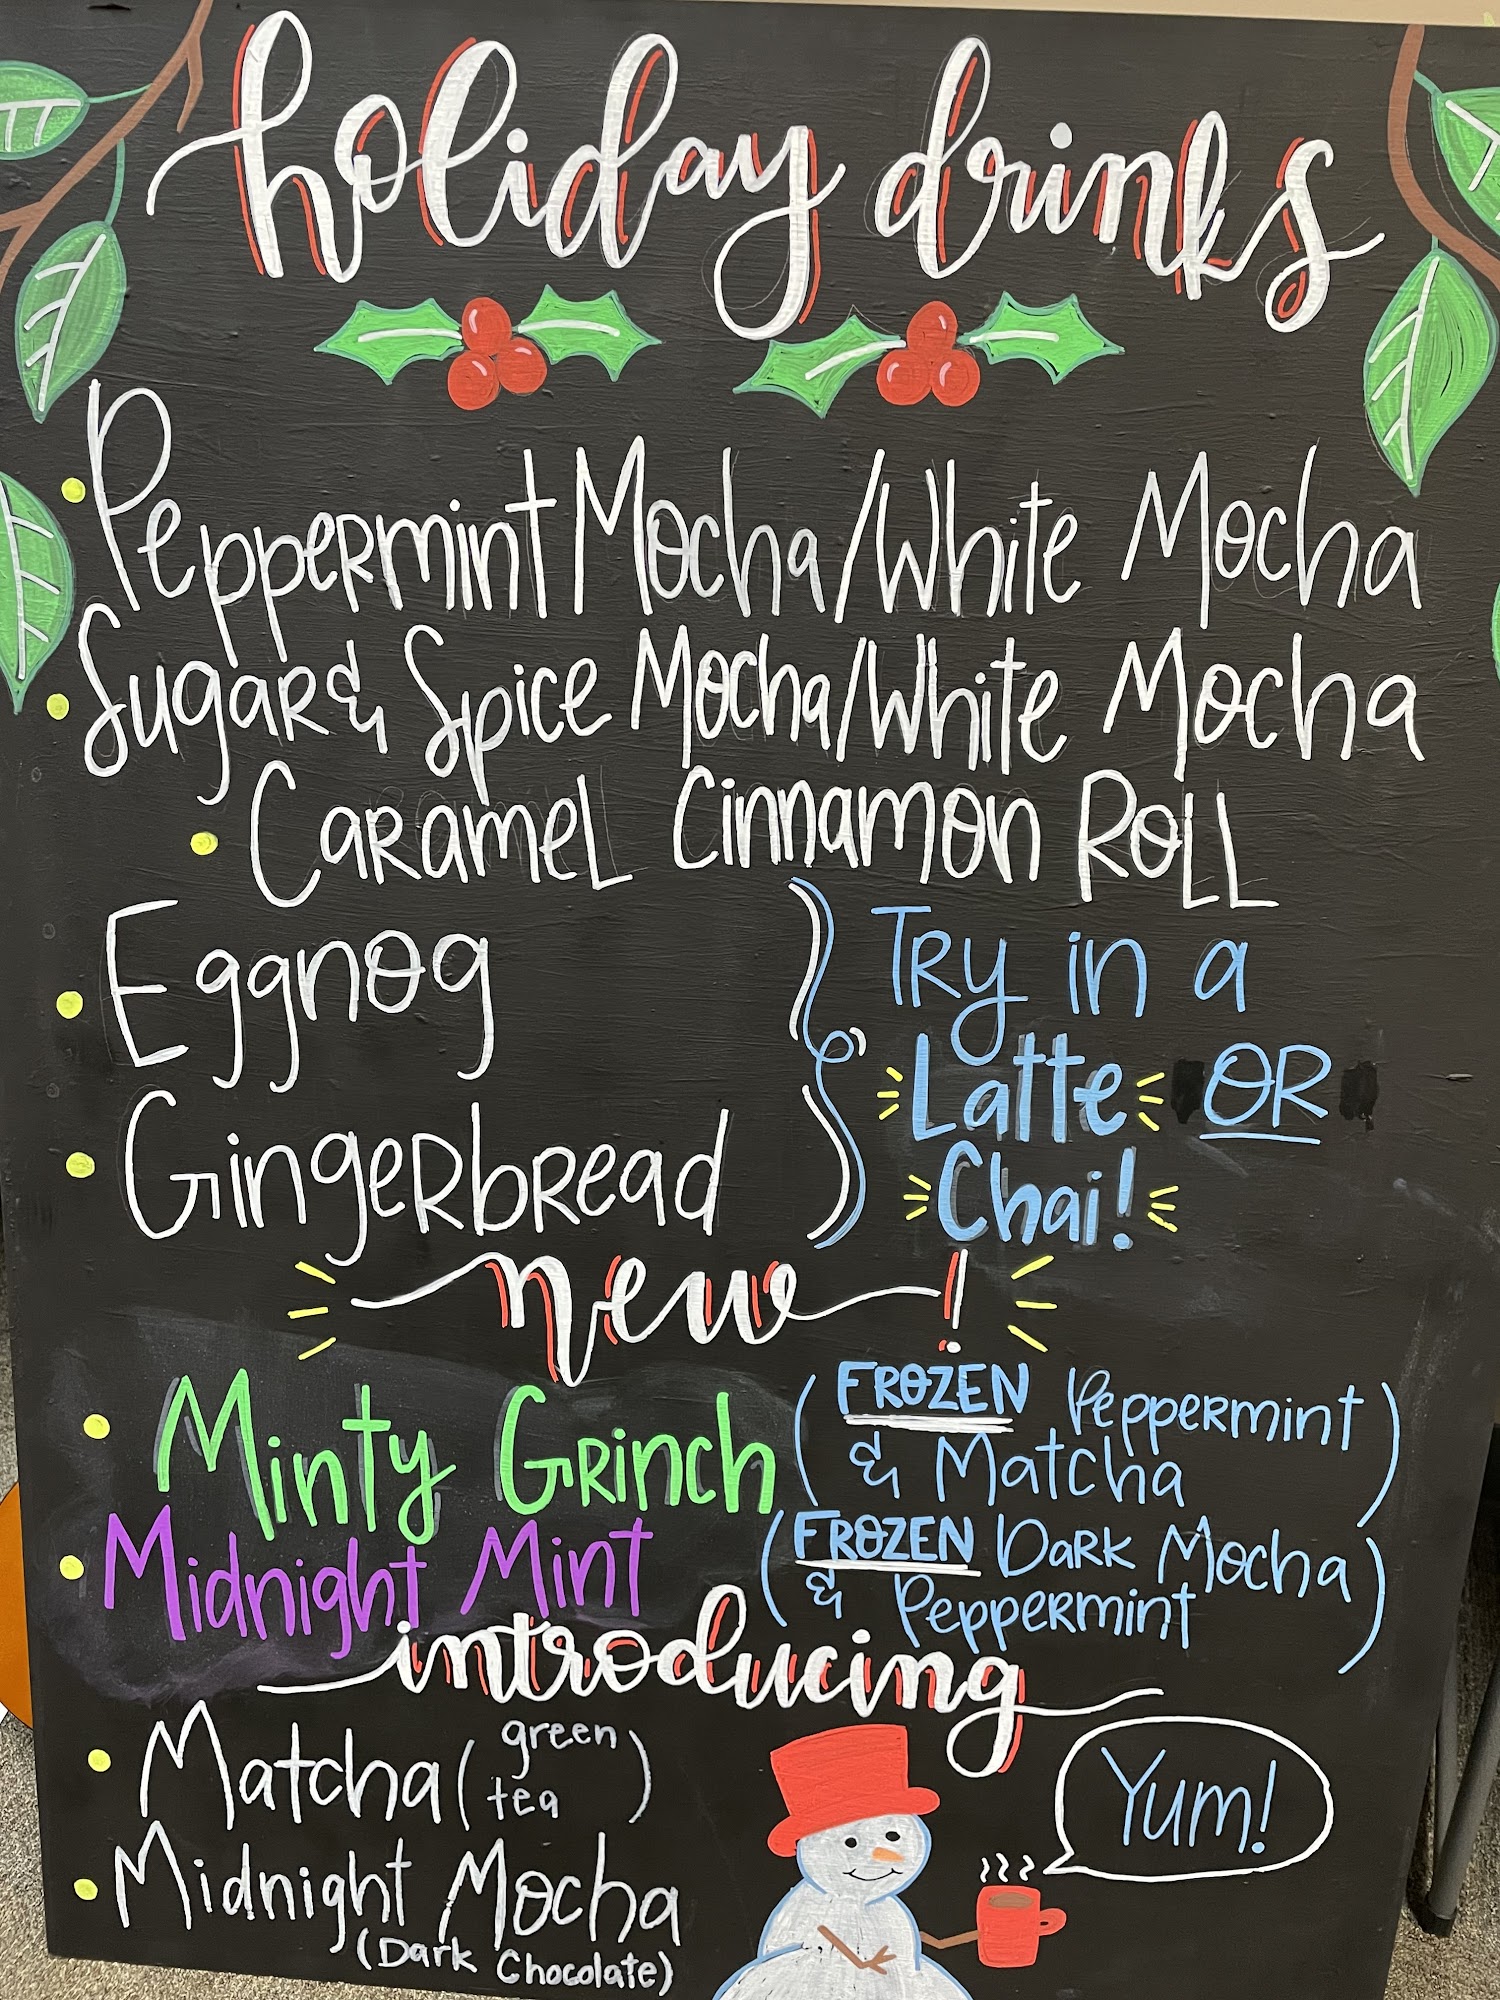 holiday drinks
• Peppermint Mocha/White Mocha
• Sugar & Spice Mocha/White Mocha
• Caramel Cinnamon Roll
• Eggnog
• Gingerbread
Try in a
Latte OR
Chai!
new!
• Minty Grinch (FROZEN Peppermint
& Matcha)
• Midnight Mint (FROZEN Dark Mocha
& Peppermint)
introducing
• Matcha (green
tea)
• Midnight Mocha
(Dark Chocolate)
Yum!